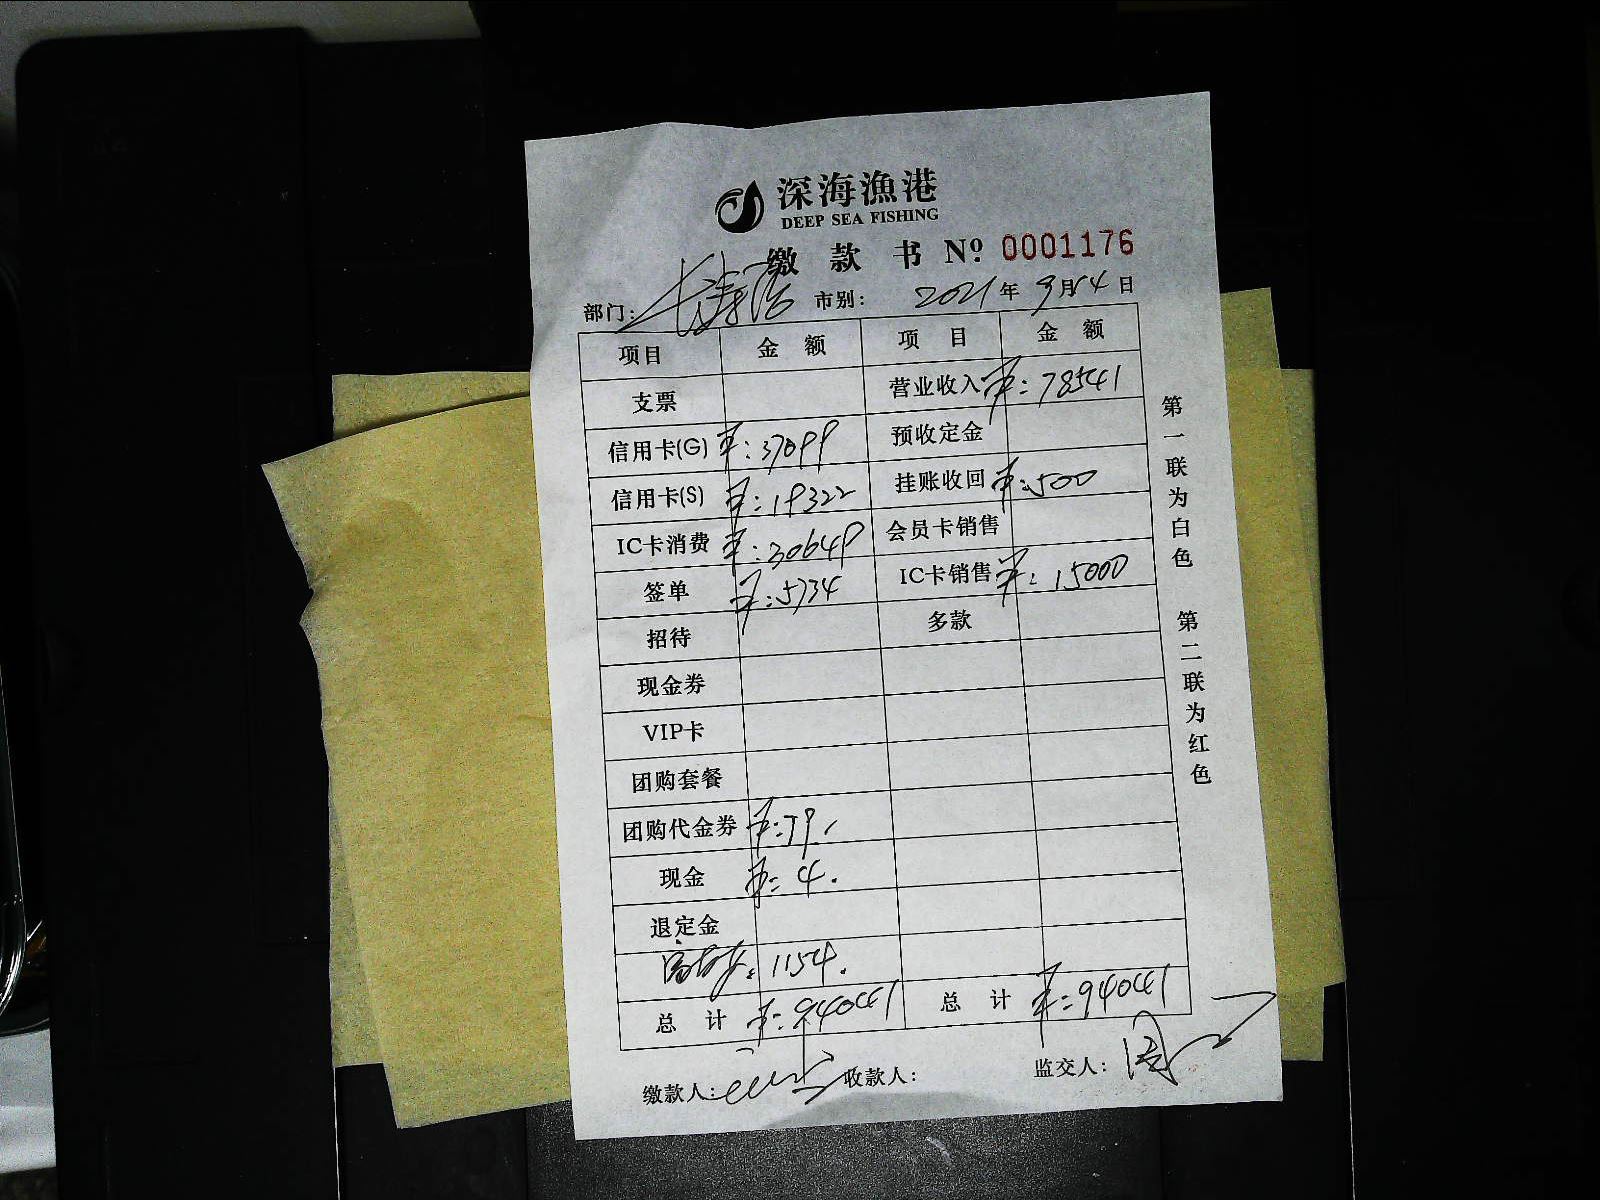 深海漁港
DEEP SEA FISHING
缴款书 Nº 0001176
部门: 市别: 2021年9月4日
项目 金额 项目 金额
支票 营业收入 ¥:78541
信用卡(G) ¥:37099 预收定金
信用卡(S) ¥:19322 挂账收回 ¥:500
IC卡消费 ¥:30649 会员卡销售
签单 ¥:5734 IC卡销售 ¥:15000
招待 多款
现金券
VIP卡
团购套餐
团购代金券 ¥:79.
现金 ¥:4.
退定金
:1154.
总计 ¥:94041 总计 ¥:94041
缴款人: 收款人: 监交人:
第一联为白色 第二联为红色